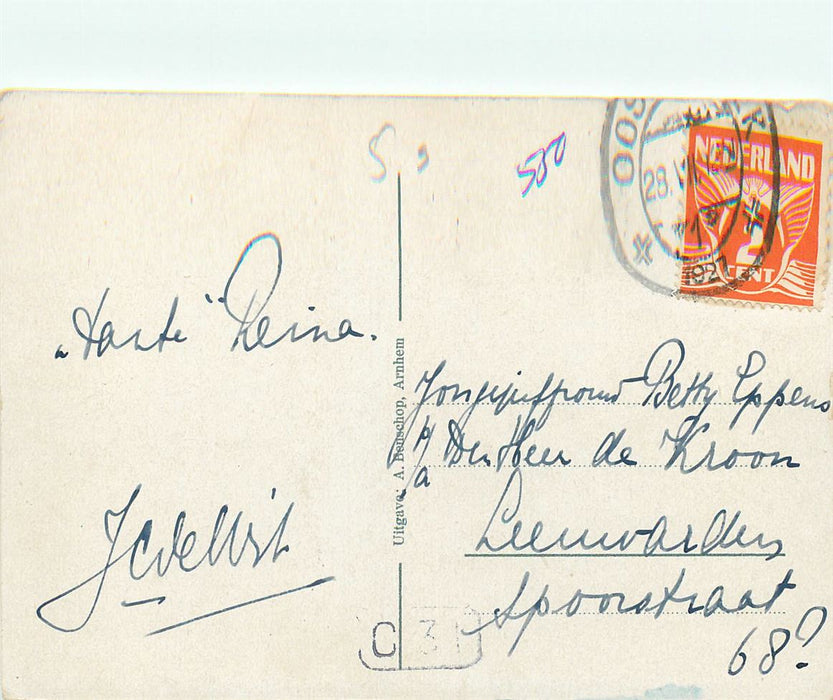 530
NEDERLAND
2
CENT
28.VII
1927
„Tante" Reina.
JCdeWit
Uitgave: A. Benschop, Arnhem
Jongejuffrouw Betty Eppens
p/a Den Heer de Kroon
Leeuwarden
Spoorstraat
68?
C 31